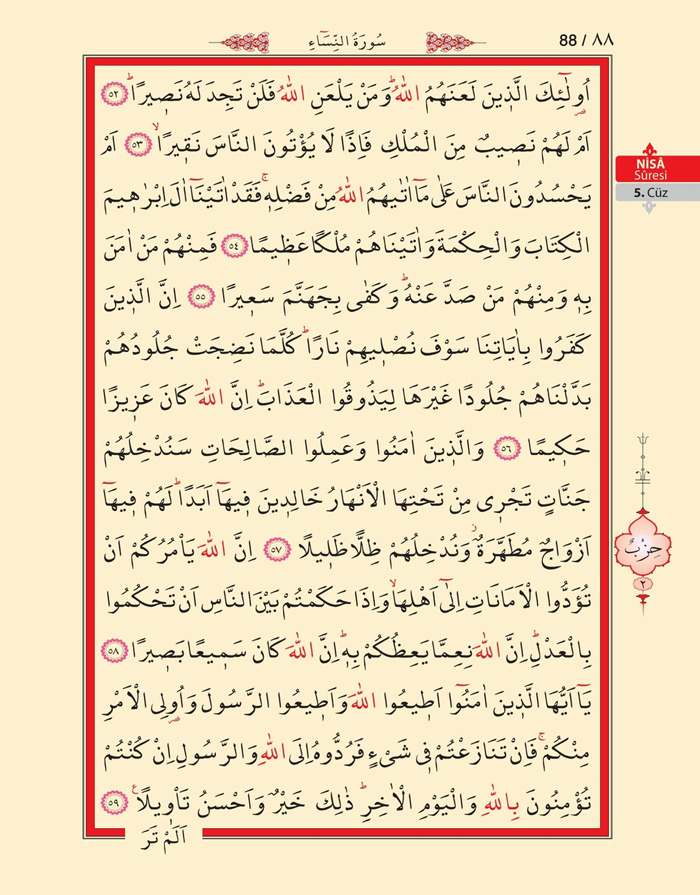 88 / ٨٨
سُورَةُ النِّسَٓاءِ
اُو۬لٰٓئِكَ الَّذ۪ينَ لَعَنَهُمُ اللّٰهُۜ وَمَنْ يَلْعَنِ اللّٰهُ فَلَنْ تَجِدَ لَهُ نَص۪يرًاۜ ﴿٥٢﴾
اَمْ لَهُمْ نَص۪يبٌ مِنَ الْمُلْكِ فَاِذًا لَا يُؤْتُونَ النَّاسَ نَق۪يرًاۙ ﴿٥٣﴾ اَمْ
يَحْسُدُونَ النَّاسَ عَلٰى مَٓا اٰتٰيهُمُ اللّٰهُ مِنْ فَضْلِه۪ۚ فَقَدْ اٰتَيْنَٓا اٰلَ اِبْرٰه۪يمَ
الْكِتَابَ وَالْحِكْمَةَ وَاٰتَيْنَاهُمْ مُلْكًا عَظ۪يمًا ﴿٥٤﴾ فَمِنْهُمْ مَنْ اٰمَنَ
بِه۪ وَمِنْهُمْ مَنْ صَدَّ عَنْهُۜ وَكَفٰى بِجَهَنَّمَ سَع۪يرًا ﴿٥٥﴾ اِنَّ الَّذ۪ينَ
كَفَرُوا بِاٰيَاتِنَا سَوْفَ نُصْل۪يهِمْ نَارًاۜ كُلَّمَا نَضِجَتْ جُلُودُهُمْ
بَدَّلْنَاهُمْ جُلُودًا غَيْرَهَا لِيَذُوقُوا الْعَذَابَۜ اِنَّ اللّٰهَ كَانَ عَز۪يزًا
حَك۪يمًا ﴿٥٦﴾ وَالَّذ۪ينَ اٰمَنُوا وَعَمِلُوا الصَّالِحَاتِ سَنُدْخِلُهُمْ
جَنَّاتٍ تَجْر۪ي مِنْ تَحْتِهَا الْاَنْهَارُ خَالِد۪ينَ ف۪يهَٓا اَبَدًاۜ لَهُمْ ف۪يهَٓا
اَزْوَاجٌ مُطَهَّرَةٌۘ وَنُدْخِلُهُمْ ظِلًّا ظَل۪يلًا ﴿٥٧﴾ اِنَّ اللّٰهَ يَاْمُرُكُمْ اَنْ
تُؤَدُّوا الْاَمَانَاتِ اِلٰٓى اَهْلِهَاۙ وَاِذَا حَكَمْتُمْ بَيْنَ النَّاسِ اَنْ تَحْكُمُوا
بِالْعَدْلِۜ اِنَّ اللّٰهَ نِعِمَّا يَعِظُكُمْ بِه۪ۜ اِنَّ اللّٰهَ كَانَ سَم۪يعًا بَص۪يرًا ﴿٥٨﴾
يَٓا اَيُّهَا الَّذ۪ينَ اٰمَنُٓوا اَط۪يعُوا اللّٰهَ وَاَط۪يعُوا الرَّسُولَ وَاُو۬لِي الْاَمْرِ
مِنْكُمْۚ فَاِنْ تَنَازَعْتُمْ ف۪ي شَيْءٍ فَرُدُّوهُ اِلَى اللّٰهِ وَالرَّسُولِ اِنْ كُنْتُمْ
تُؤْمِنُونَ بِاللّٰهِ وَالْيَوْمِ الْاٰخِرِۜ ذٰلِكَ خَيْرٌ وَاَحْسَنُ تَاْو۪يلًا۟ ﴿٥٩﴾
اَلَمْ تَرَ
NİSÂ
Sûresi
5. Cüz
حِزْبٌ
٢